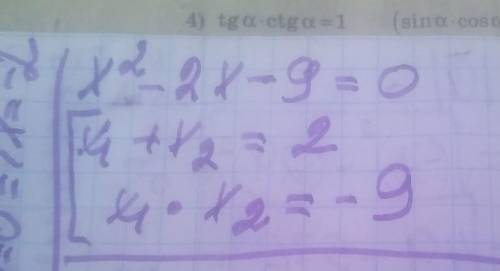 4) tgα·ctgα=1 (sinα·cosα
x² - 2x - 9 = 0
x₁ + x₂ = 2
x₁ · x₂ = - 9